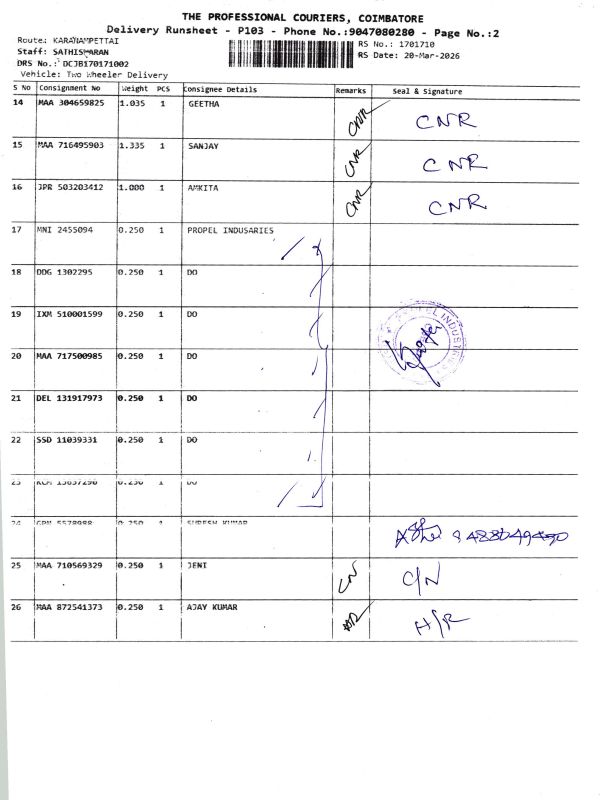 THE PROFESSIONAL COURIERS, COIMBATORE
Delivery Runsheet - P103 - Phone No.:9047080280 - Page No.:2
Route: KARANAMPETTAI
RS No.: 1701710
Staff: SATHISWARAN
RS Date: 20-Mar-2026
DRS No.: DCJB170171002
Vehicle: Two Wheeler Delivery
S No Consignment No Weight PCS Consignee Details Remarks Seal & Signature
14 MAA 304659825 1.035 1 GEETHA CNR CNR
15 MAA 716495903 1.335 1 SANJAY CNR CNR
16 JPR 503203412 1.000 1 AMKITA CNR CNR
17 MNI 2455094 0.250 1 PROPEL INDUSARIES
18 DDG 1302295 0.250 1 DO
19 IXM 510001599 0.250 1 DO
PROPEL INDUSTRIES
20 MAA 717500985 0.250 1 DO
21 DEL 131917973 0.250 1 DO
22 SSD 11039331 0.250 1 DO
23 0.250 1 DO
24 0.250 1 SURESH KUMAR
25 MAA 710569329 0.250 1 JENI CN C/N
26 MAA 872541373 0.250 1 AJAY KUMAR H/R